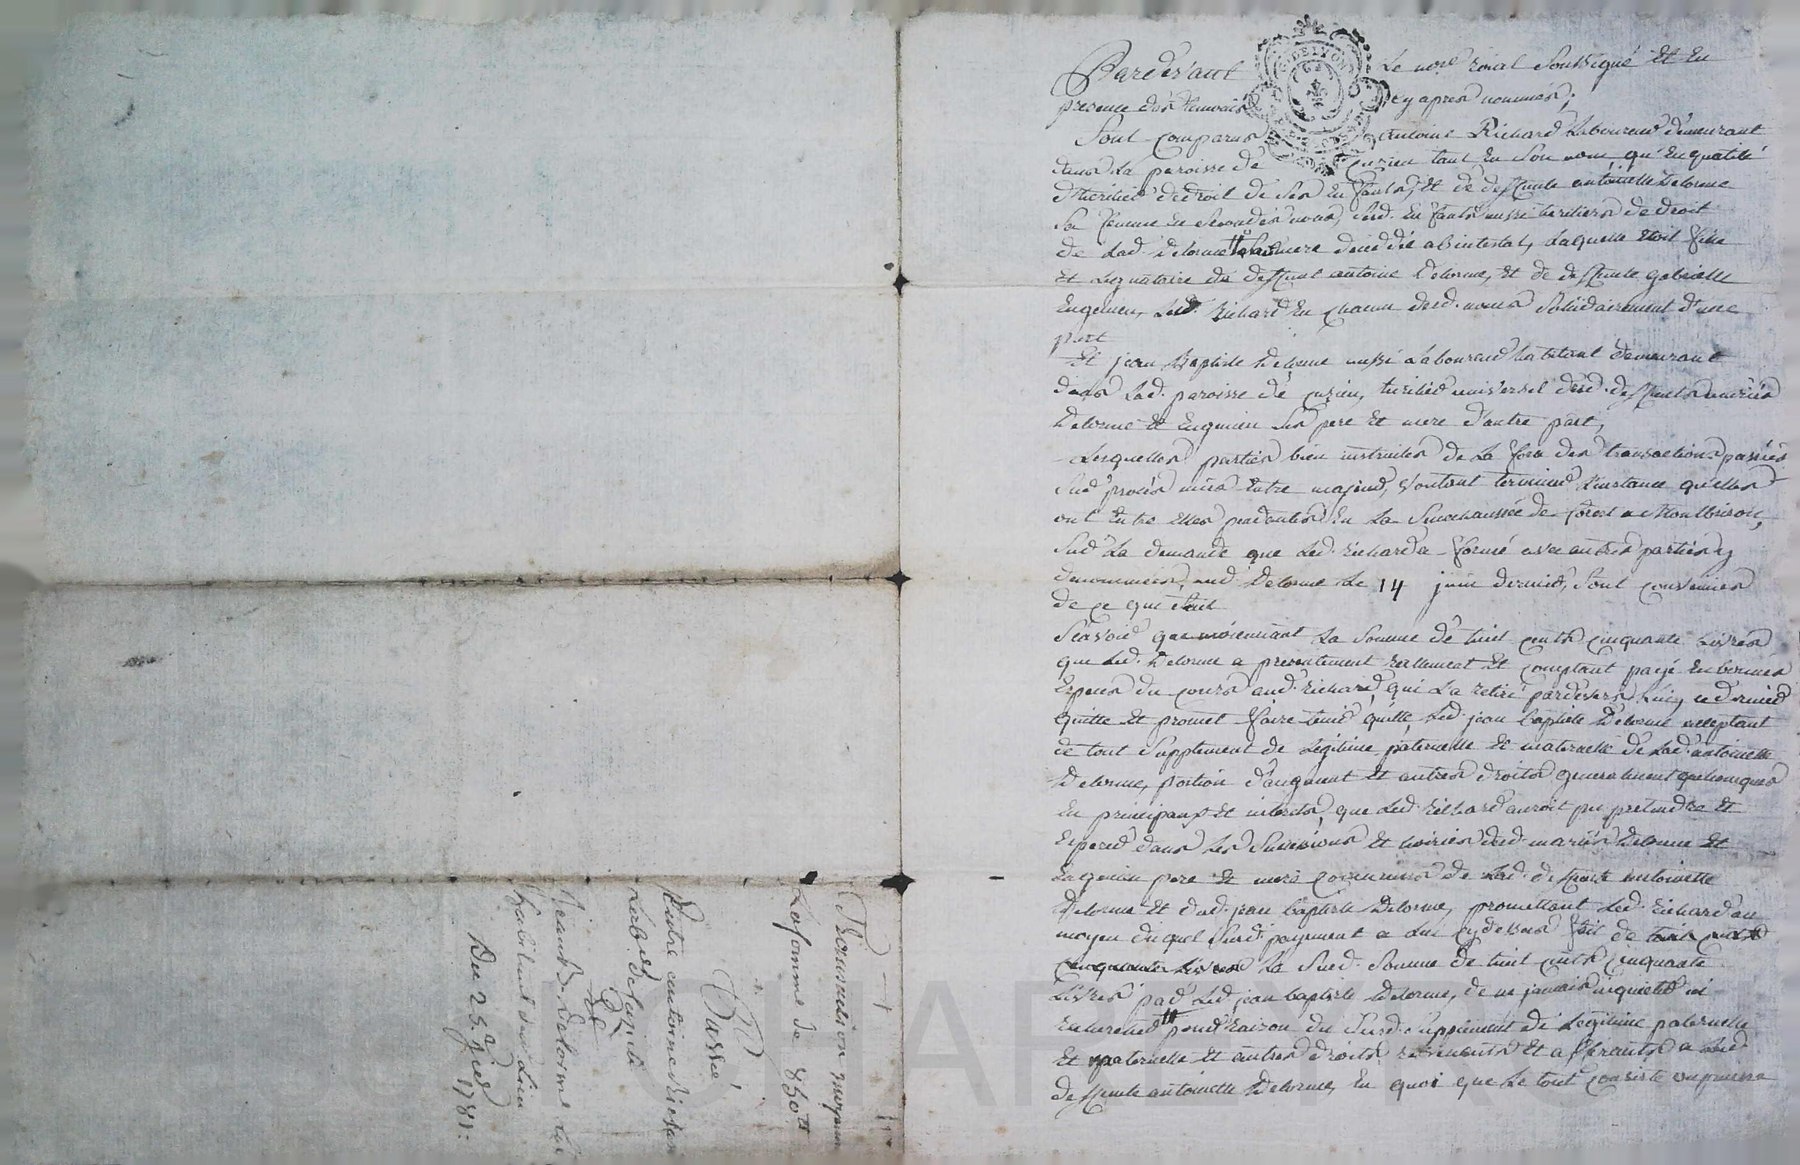 Pardevant Le nore roial Soussigné Et En
presence des temoins Cy apres nommés;
Sont Comparus antoine Richard Laboureur demeurant
dans La paroisse de Cuzieu tant En Son nom qu'En qualité
d'heritier de droit de Ses Enfants, Et de deffunte antoinette Delorme
Sa femme Lesd. Enfants aussi heritiers de droit
de Lad. Delorme Leur mere decedée abintestat, Laquelle Etoit fille
Et Legataire de deffunt antoine Delorme, Et de deffunte gabrielle
Enguien, Led. Richard En Chacun desd. noms Solidairement d'une
part
Et jean Baptiste Delorme aussi Laboureur habitant demeurant
dans Lad. paroisse de Cuzieu, heritier universel desd. deffunts mariés
Delorme Et Enguien Ses pere Et mere d'autre part,
Lesquelles parties bien instruites de La force des transactions passées
Sur procès mûs Entre majeurs, Voulant terminer L'instance qu'elles
ont Entre Elles pendantes En La Senechaussée de forest a Montbrison,
Sur La demande que Led. Richard a formé avec autres parties y
denommées, aud. Delorme Le 14 juin dernier, Sont Convenues
de Ce qui Suit
Scavoir que moiennant La Somme de huit Cents Cinquante Livres
que Led. Delorme a presentement reellement Et Comptant payé En bonnes
Especes du Cours aud. Richard qui La retiré pardevers Lui, Ce dernier
quitte Et promet faire tenir quitte Led. jean baptiste Delorme acceptant
de tout Supplement de Legitime paternelle Et maternelle de Lad. antoinette
Delorme, portion d'augment Et autres droits generalement quelconques
En principaux Et interets, que Led. Richard auroit pu pretendre Et
Esperer dans Les Successions Et hoiries desd. mariés Delorme Et
Enguien pere Et mere Communs de Lad. deffunte antoinette
Delorme Et dud. jean baptiste Delorme, promettant Led. Richard au
moyen duquel Susd. payement a Lui Cy dessus fait de
La Susd. Somme de huit Cents Cinquante
Livres par Led. jean baptiste Delorme, de ne jamais inquieter ni
rechercher pour raison du Susd. Supplement de Legitime paternelle
Et maternelle Et autres droits revenants Et afferants a Lad.
deffunte antoinette Delorme, En quoi que Le tout Consiste ou puisse
Transaction moyenant
La somme de 850tt
Passée
Entre antoine Richard
Lab. de Cuzieu
Et
Jean B. Delorme
habitant dud. Lieu
Du 25 aout 1781.
CHAPEYRON